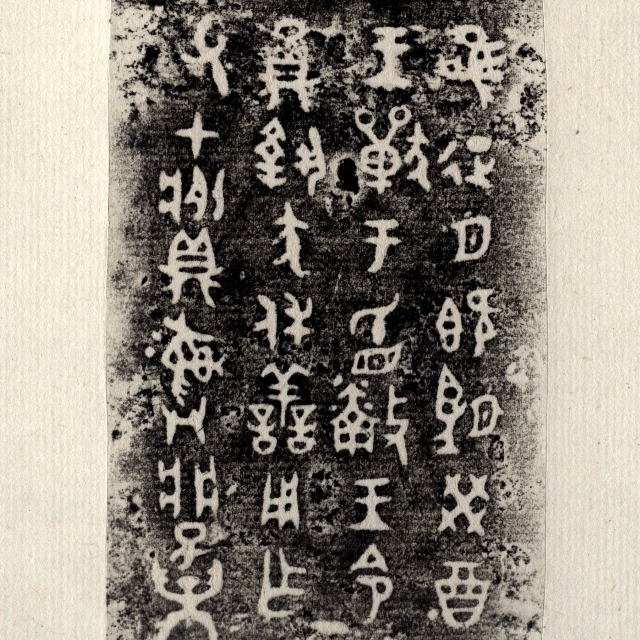 隹征月既朢癸酉
王獸于眂王令
員執犬休善用乍
父甲彝